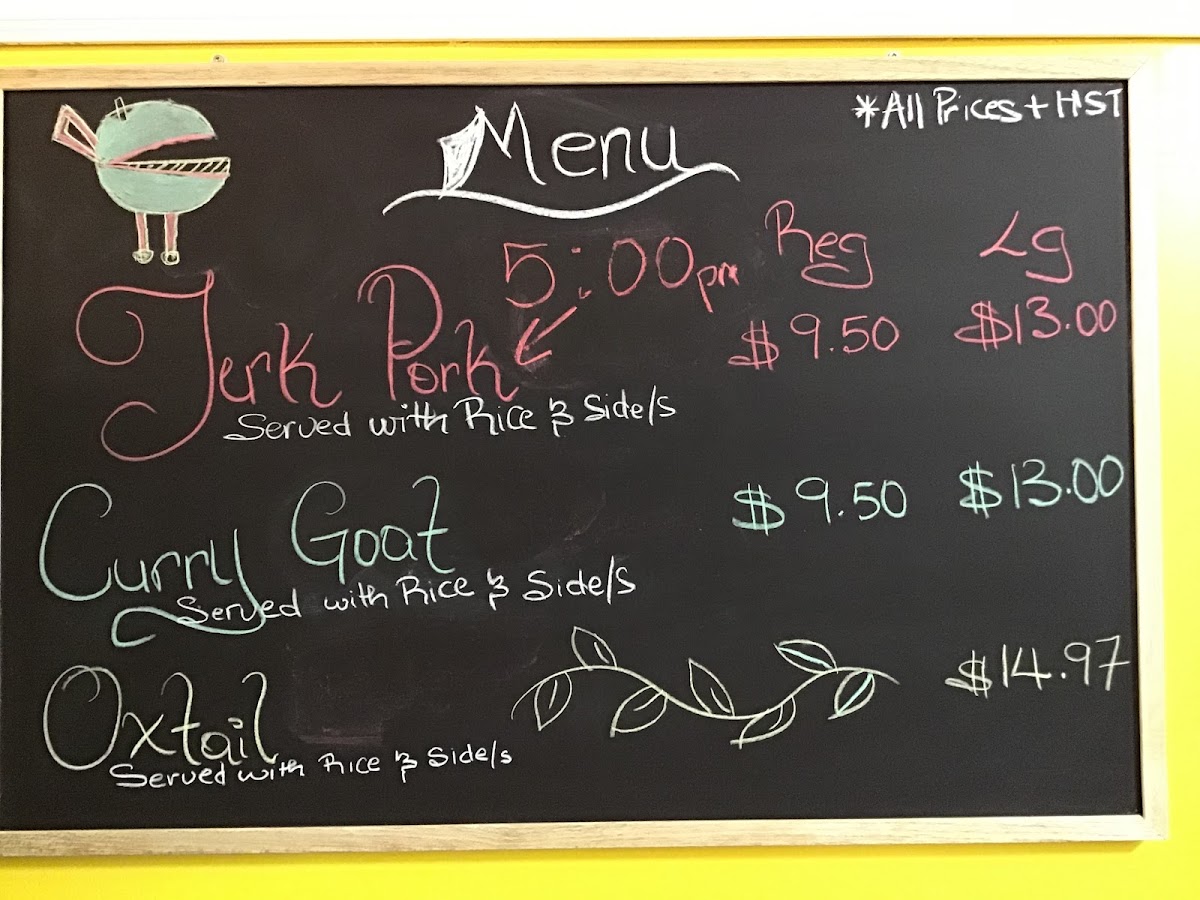 Menu
*All Prices + HST
5:00pm
Reg
Lg
Jerk Pork
$9.50
$13.00
Served with Rice & Side/s
Curry Goat
$9.50
$13.00
Served with Rice & Side/s
Oxtail
$14.97
Served with Rice & Side/s